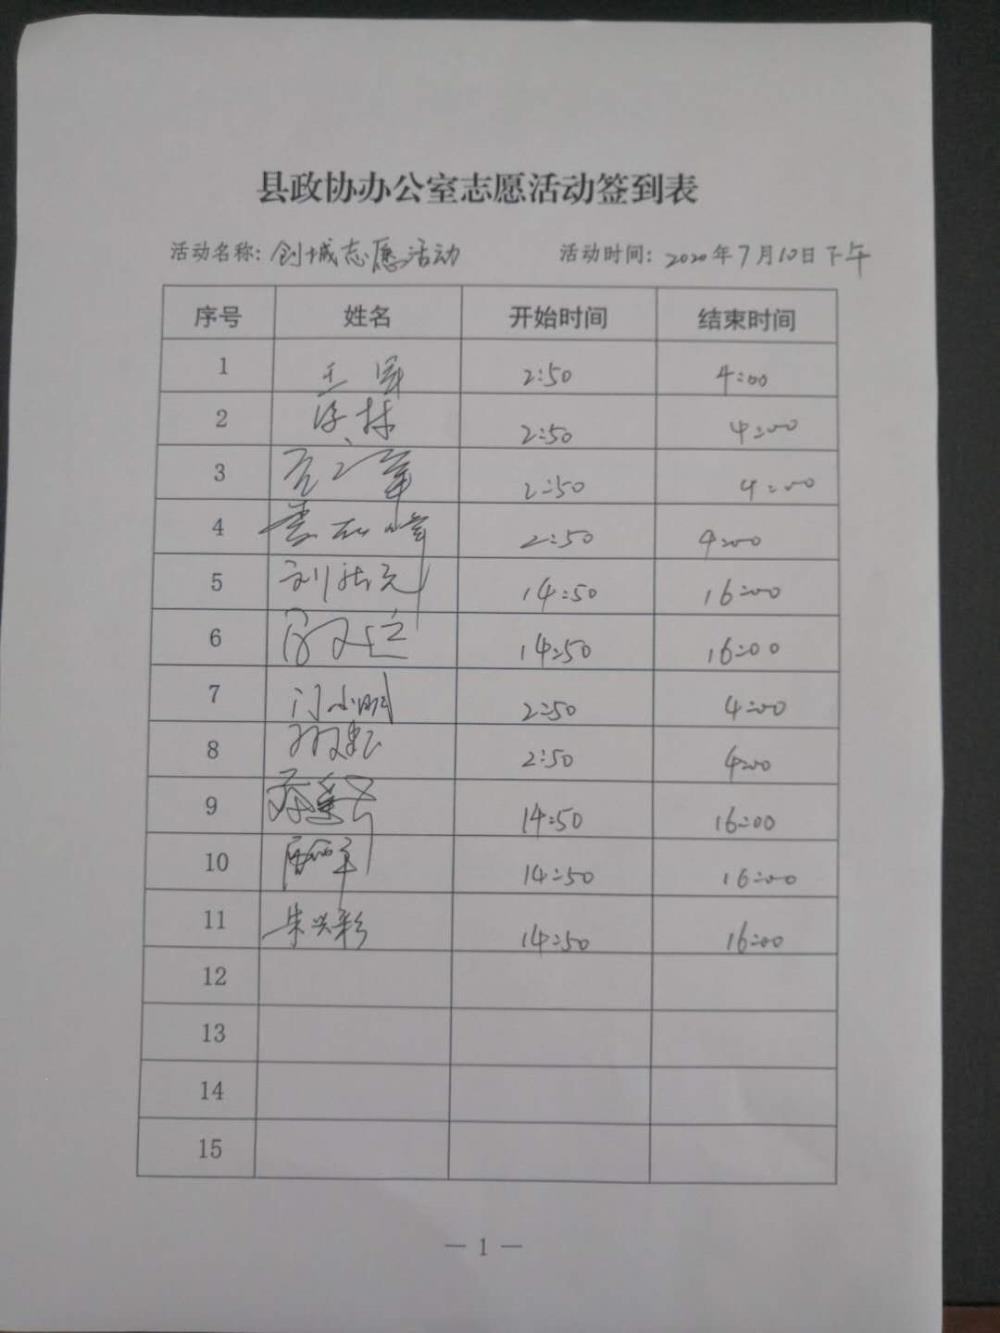 县政协办公室志愿活动签到表
活动名称：创城志愿活动 活动时间：2020年7月10日下午
序号 姓名 开始时间 结束时间
1 王军 2:50 4:00
2 2:50 4:00
3 2:50 4:00
4 2:50 4:00
5 14:50 16:00
6 14:50 16:00
7 门小明 2:50 4:00
8 2:50 4:00
9 14:50 16:00
10 14:50 16:00
11 朱兴彩 14:50 16:00
12
13
14
15
— 1 —